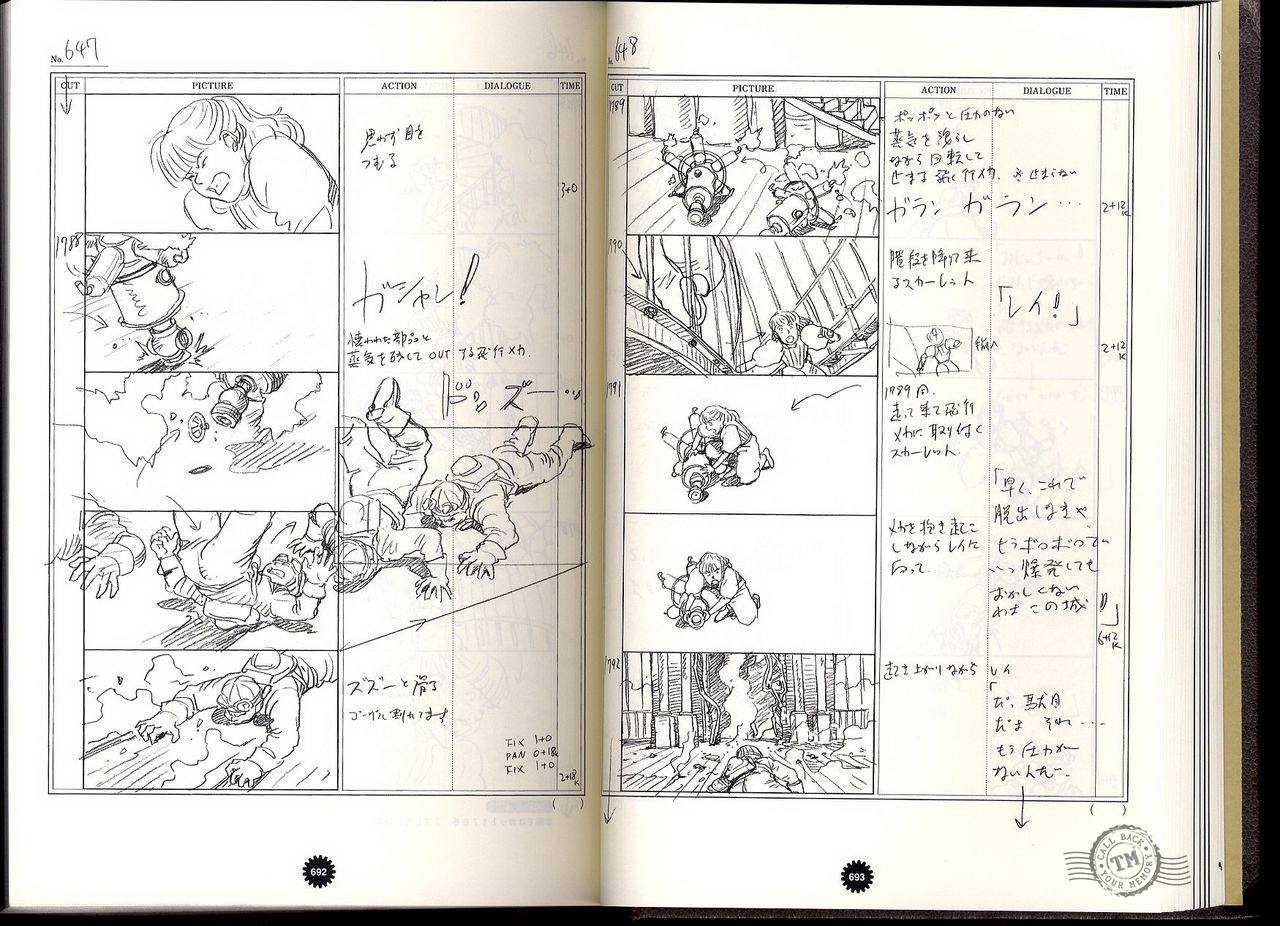 No. 647
CUT PICTURE ACTION DIALOGUE TIME
思わず目を
つむる
3+0
1788
ガシャン!
壊われた部品と
蒸気を残して OUT する飛行メカ.
ズズーと滑る
ゴーグル割れてます
FIX 1+0
PAN 0+18K
FIX 1+0
2+18K
( )
692
648
CUT PICTURE ACTION DIALOGUE TIME
1789
ポッポッと圧力のない
蒸気を洩らし
ながら回転して
止まる飛行メカ.
ガラン ガラン…
2+12K
1790
階段を降りて来
るスカーレット
「レイ!」
2+12K
1791
1789同.
走って来て飛行
メカに取り付く
スカーレット.
「早く、これで
脱出しなきゃ
メカを抱き起こ
しながらレイに
向って.
いつ爆発しても
おかしくない
わよ この城」
6+12K
1792
起き上がりながら
レイ
「だ、駄目
だよ それ…
もう圧力が
ないんだ.
( )
693
CALL BACK
TM
YOUR MEMORY